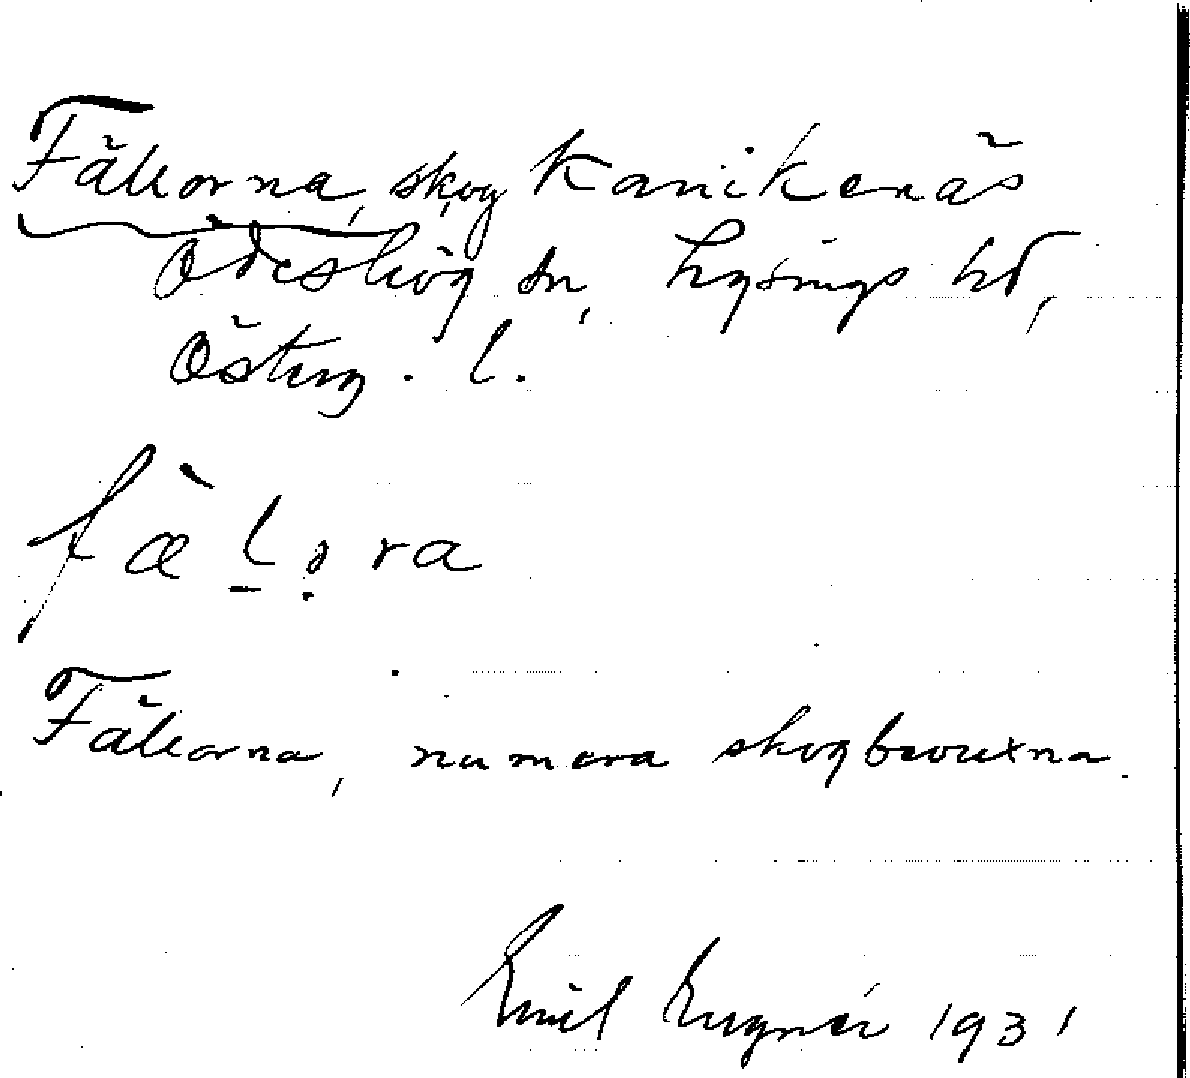 Fällorna, skog Kanikenäs
Ödeshög sn, Lysings hd,
Österg. l.
fæ̀l̠ọra
Fällorna, numera skogbevuxna.
Emil 1931